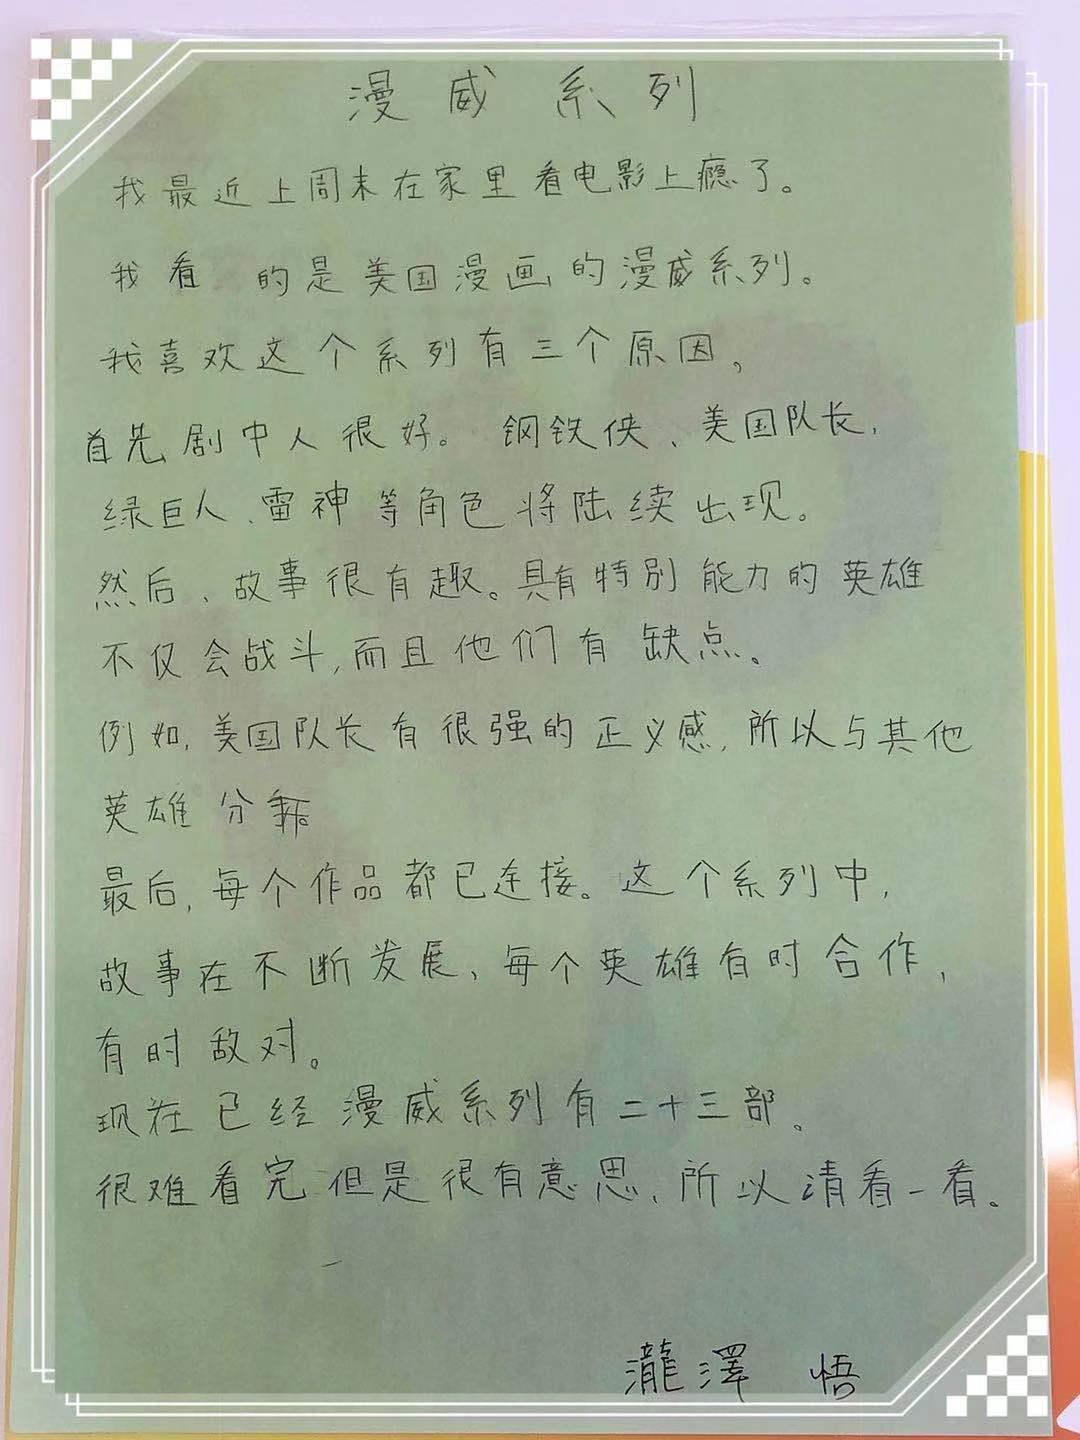 漫威系列
我最近上周末在家里看电影上瘾了。
我看 的是美国漫画的漫威系列。
我喜欢这个系列有三个原因,
首先剧中人很好。钢铁侠、美国队长,
绿巨人、雷神等角色将陆续出现。
然后、故事很有趣。具有特别能力的英雄
不仅会战斗,而且他们有缺点。
例如,美国队长有很强的正义感,所以与其他
英雄分
最后,每个作品都已连接。这个系列中,
故事在不断发展、每个英雄有时合作,
有时敌对。
现在已经漫威系列有二十三部。
很难看完但是很有意思、所以请看一看。
瀧澤 悟